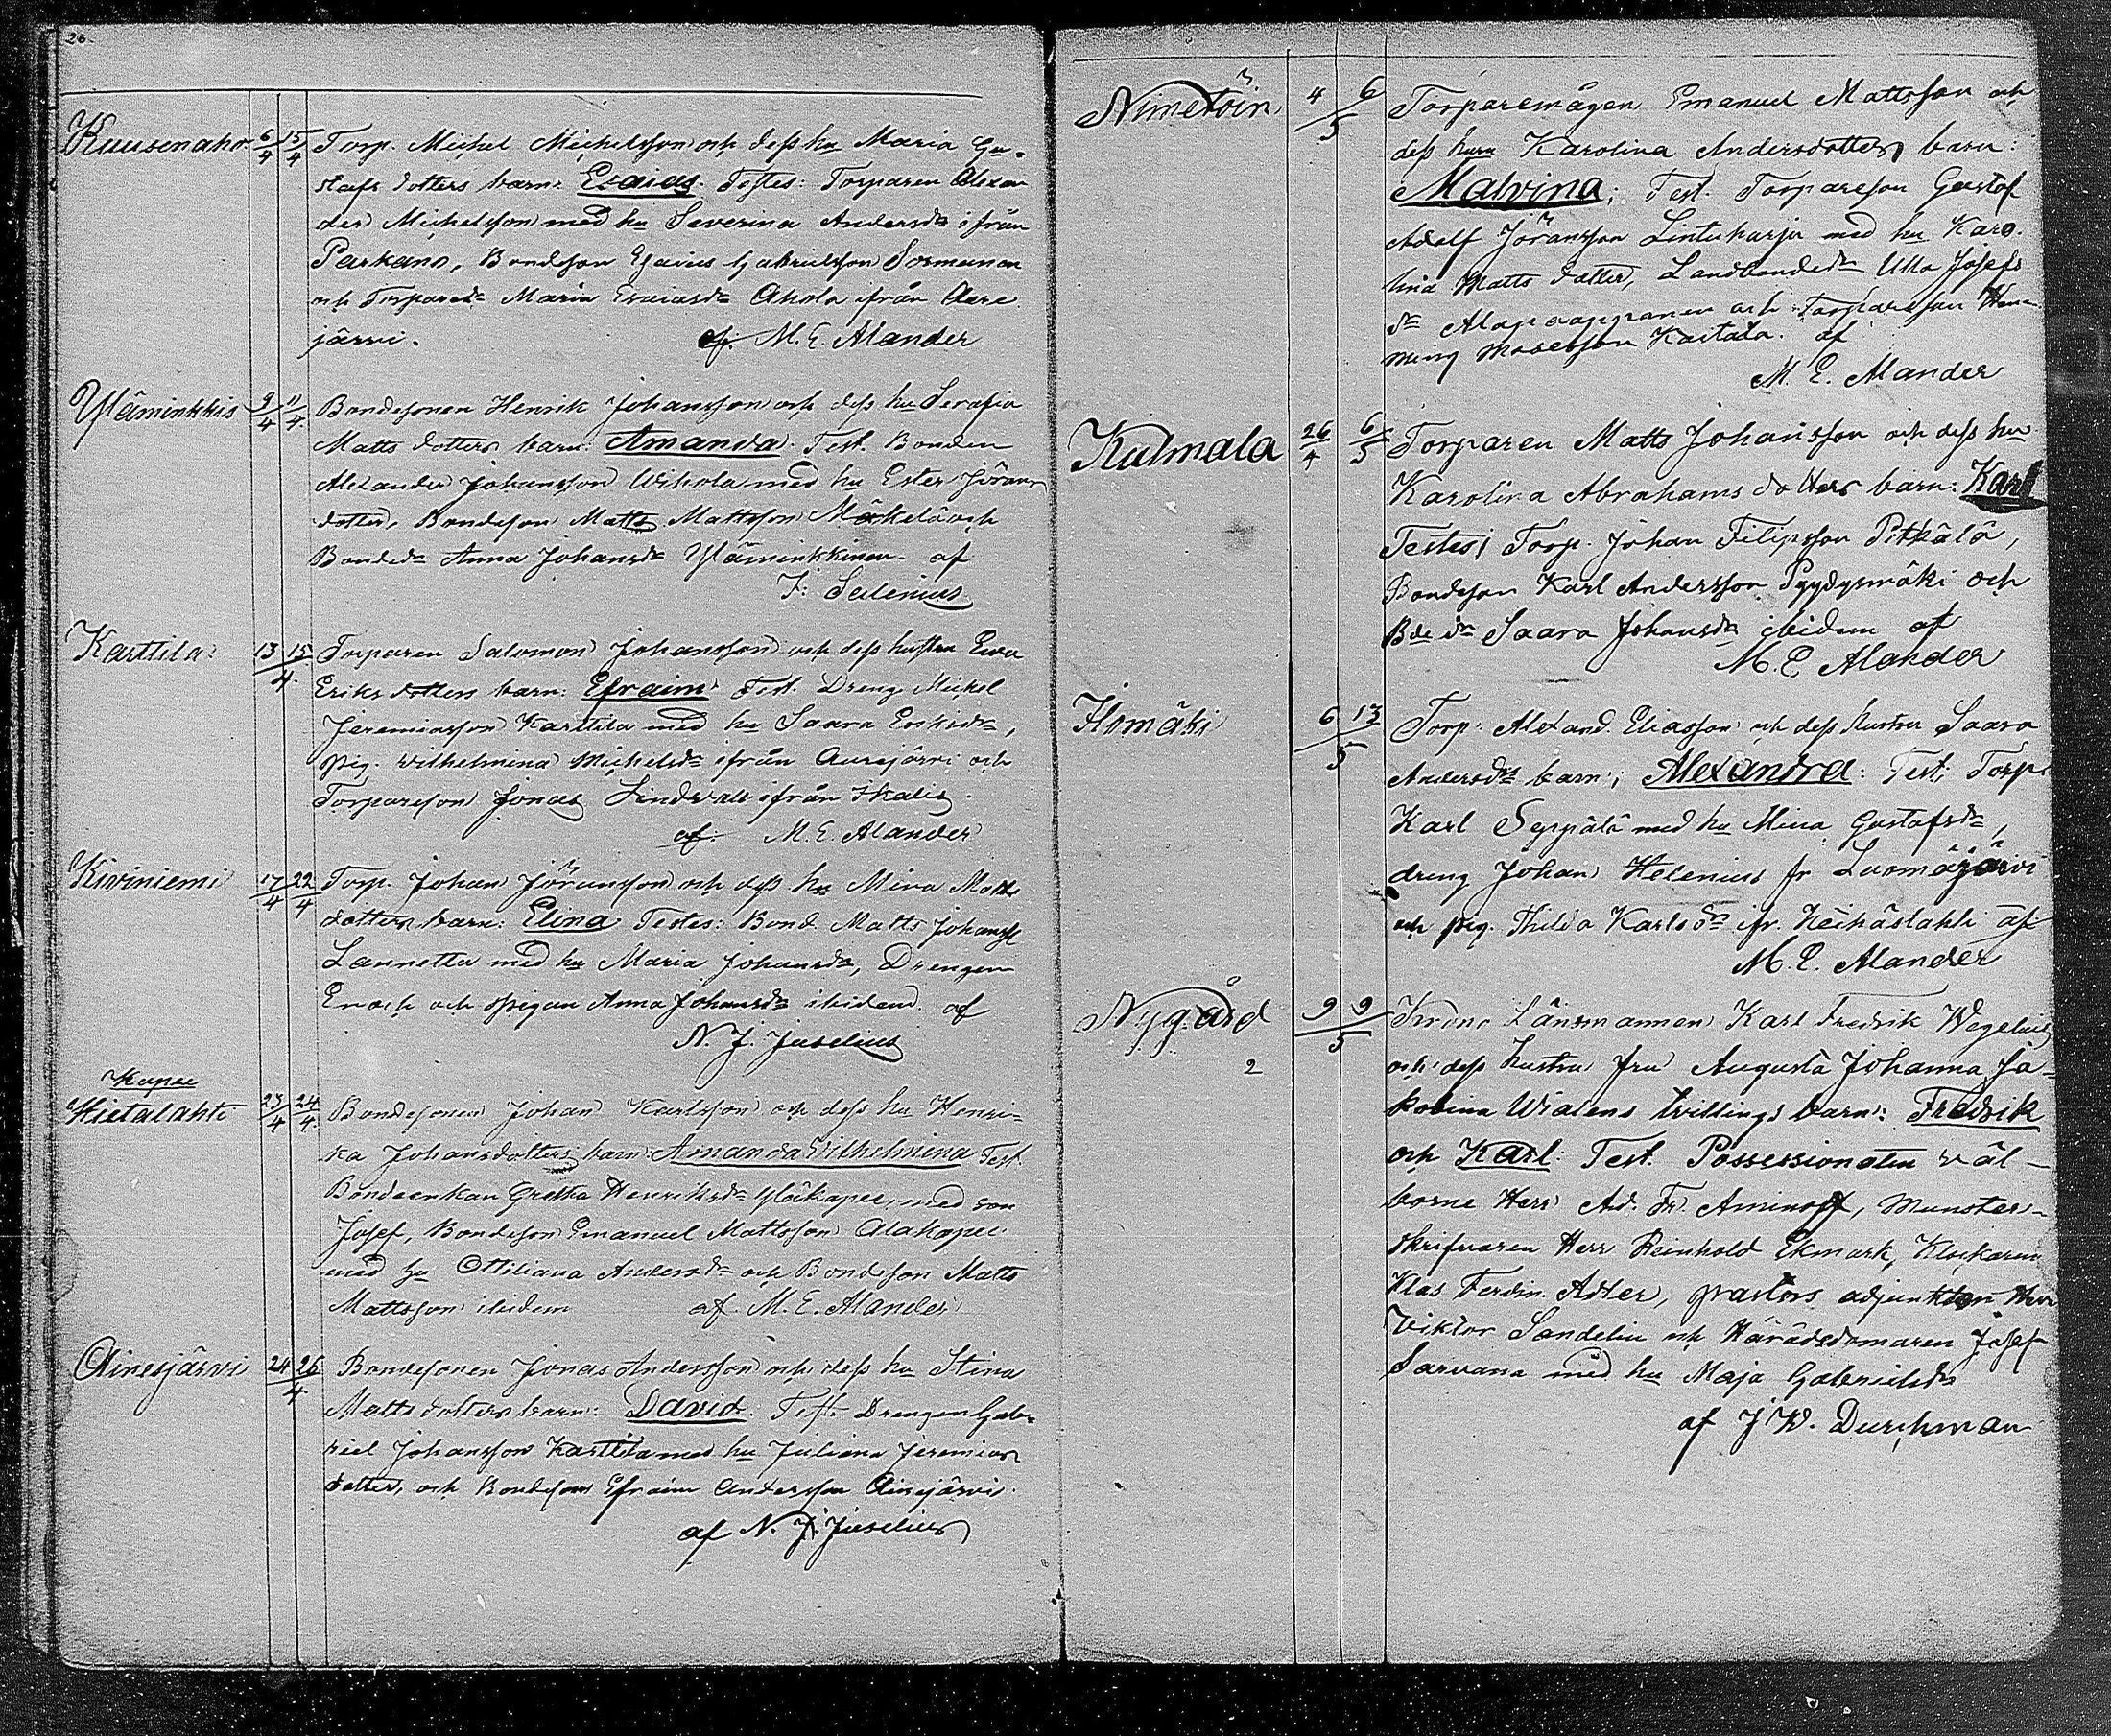 26.
Kuusenaho 6/4 15/4 Torp. Michel Michelsson och dess hu Maria Gu-
stafs dotters barn: Esaias. Testes: Torparen Alexan
der Michelsson med hu Severina Andersdr ifrån
Parkano, Bondeson Esaias Gabrielsson Sormunen
och Torpared. Maria Esaiasdr Ahola ifrån Aure
järvi. af. M. E. Alander
Yläminkkis 9/4 11/4 Bondesonen Henrik Johansson och dess hu Serafia
Matts dotters barn: Amanda. Test. Bonden
Alexander Johansson Wihola med hu Ester Jörans
dotter, Bondeson Matts Mattsson Mäkelä och
Bondedr Anna Johansdr Yläminkkinen. af
F. Salenius
Karttila 13 15/4 Torparen Salomon Johansson och dess hustru Ewa
Eriks dotters barn: Efraim. Test. Dreng Michel
Jeremiasson Karttila med hu Saara Eriksdr,
pig. Wilhelmina Michelsdr ifrån Aurejärvi och
Torpareson Jonas Lindvall ifrån Ikalis.
af. M. E. Alander
Kiviniemi 17/4 22/4 Torp. Johan Jöransson och dess hu Mina Matts
dotters barn: Elina Testes: Bond. Matts Johanss
Lannetta med hu Maria Johansdr, Drengen
Enoch och pigan Anna Johansdr ibidem. af
N. J. Juselius
Kapee
Hietalahti 23/4 24/4 Bondesonen Johan Karlsson och dess hu Henri-
ka Johansdotters barn: Amanda Vilhelmina Test.
Bondeenkan Gretha Henriksdr Yläkapee, med son
Josef, Bondeson Emanuel Mattsson Alakapee
med hu Ottiliana Andersdr och Bondeson Matts
Mattsson ibidem af. M. E. Alander
Ainesjärvi 24 26/4 Bondesonen Jonas Andersson och dess hu Stina
Matts dotters barn: David. Test. Drengen Gab-
riel Johansson Karttila med hu Juliana Jeremias
dotter, och Bondeson Efraim Andersson Ainesjärvi.
af N. J. Juselius
Nimetöin 4 6/5 Torparemågen Emanuel Mattsson och
dess hum Karolina Andersdotters barn:
Malvina; Test. Torpareson Gustaf
Adolf Jöransson Lintuharju med hu Karo-
lina Matts dotter, Landbondedr Ulla Josefs
dr Alapaappanen och Torpareson Hen-
ming Mosesson Kaitala. af
M. E. Alander
Kulmala 26/4 6/5 Torparen Matts Johansson och dess hu
Karolina Abrahams dotters barn: Karl
Testes; Torp. Johan Filipsson Pitkälä,
Bondeson Karl Andersson Pyydysmäki och
Bde dr Saara Johansdr ibidem af
M. E. Alander
Isomäki 6 13/5 Torp. Alexand. Eliasson och dess hustru Saara
Andersdrs barn; Alexandra: Test; Torp.
Karl Seppälä med hu Mina Gustafsdr,
dreng Johan Helenius fr Luomajärvi
och pig. Thilda Karlsdr ifr. Keihäslahti af
M. E. Alander
Nygård 9 9/5 Krono Länsmannen Karl Fredrik Wegelius
2 och dess hustru fru Augusta Johanna Ja-
kobina Widens tvillings barn: Fredrik
och Karl: Test. Possessionaten väl-
borne Herr Ad. Fr. Aminoff, Munster-
skrifvaren Herr Reinhold Ekmark, Klockaren
Klas Ferdin. Adler, pastors adjunkten Herr
Viktor Sandelin och Häradsdomaren Josef
Sarvana med hu Maja Gabrielsdr
af J. W. Durchman